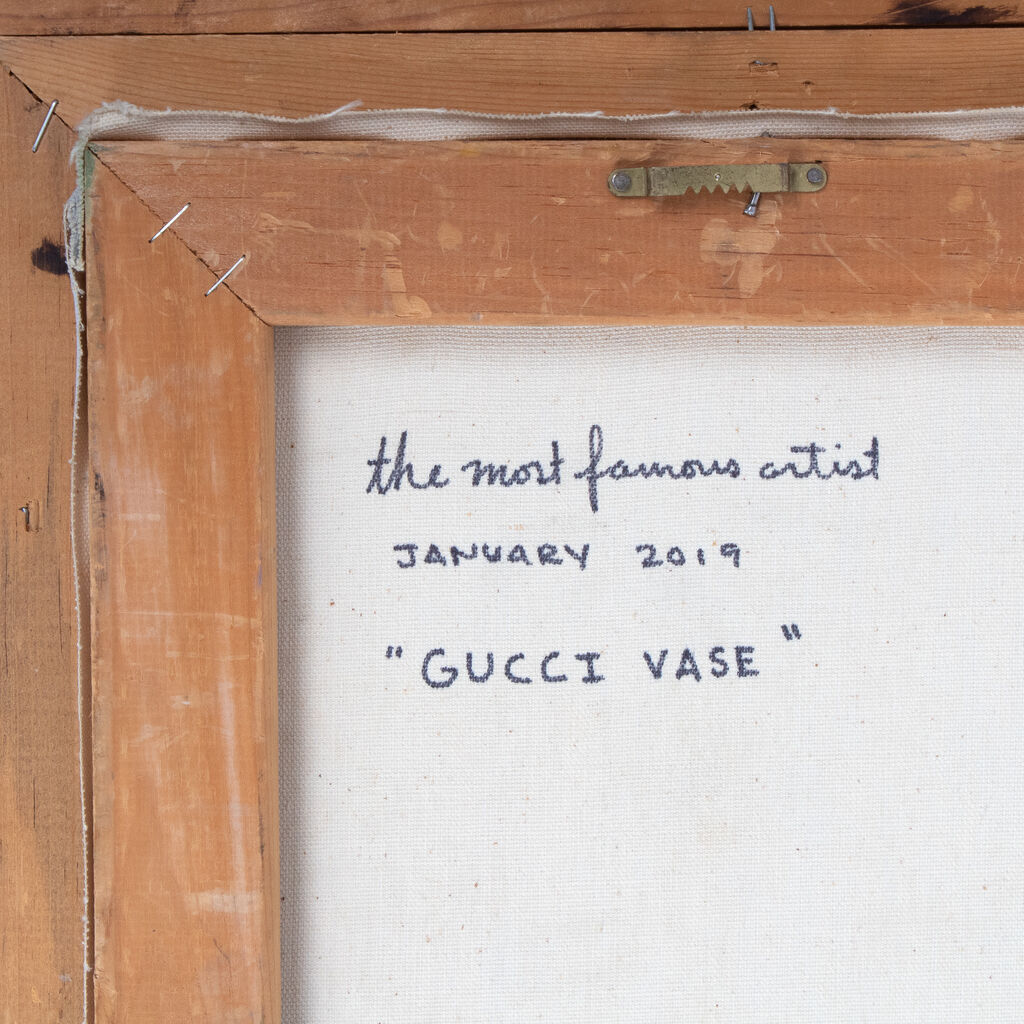 the most famous artist
JANUARY 2019
"GUCCI VASE"